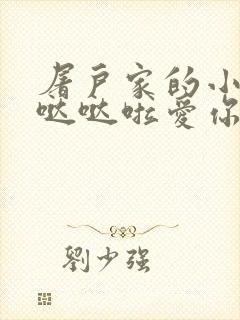 屠戶家的小
哒哒啦愛你
劉少强